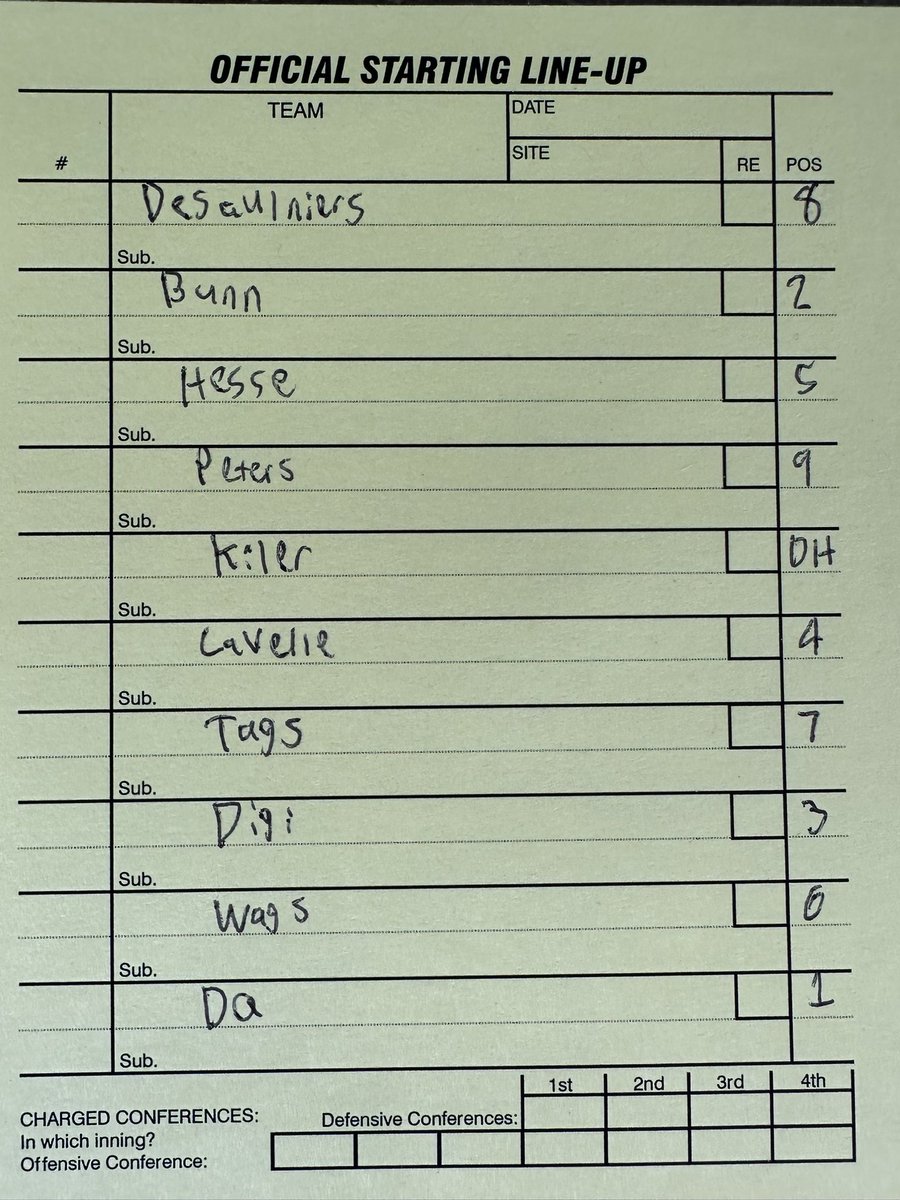 OFFICIAL STARTING LINE-UP
# TEAM DATE
SITE RE POS
Desaulniers 8
Sub.
Bunn 2
Sub.
Hesse 5
Sub.
Peters 9
Sub.
Kiler DH
Sub.
Lavelle 4
Sub.
Tags 7
Sub.
Digi 3
Sub.
Wags 6
Sub.
Da 1
Sub.
1st 2nd 3rd 4th
CHARGED CONFERENCES: Defensive Conferences:
In which inning?
Offensive Conference: